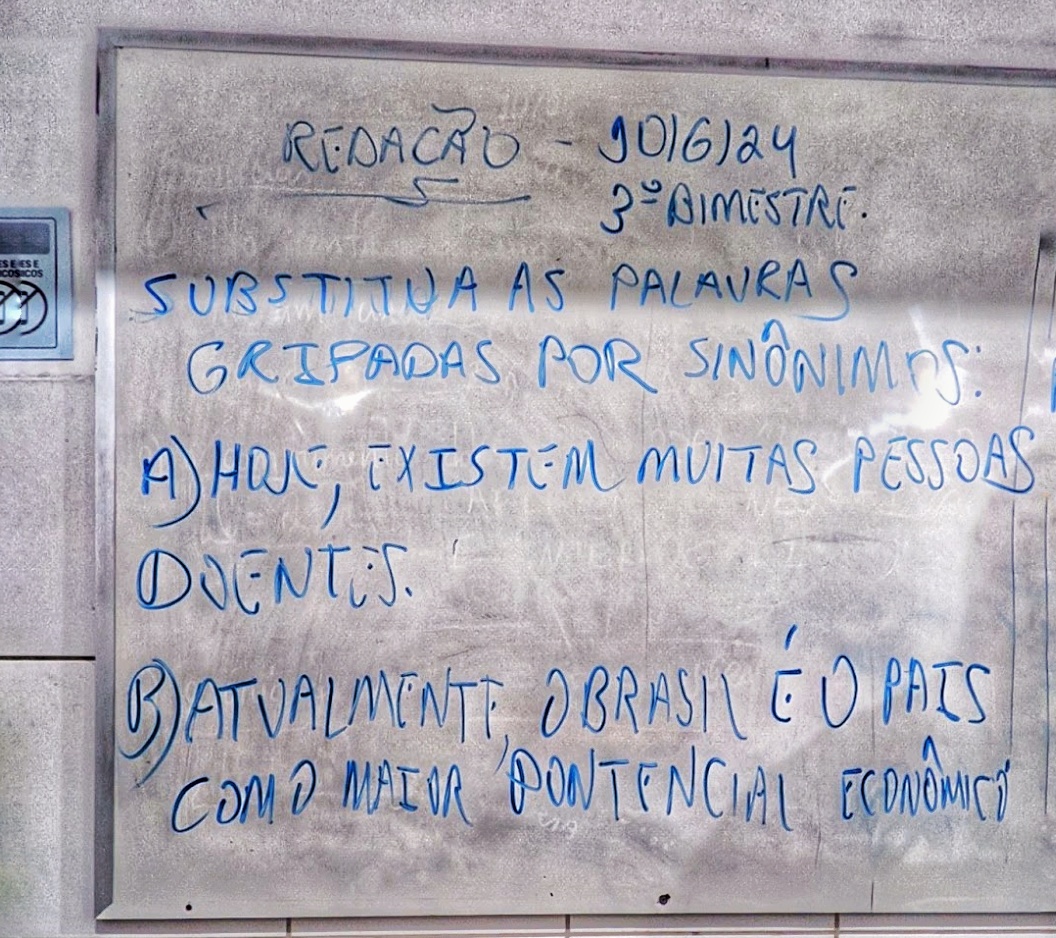 REDAÇÃO - 10/6/24
3º BIMESTRE.
SUBSTITUA AS PALAVRAS
GRIFADAS POR SINÔNIMOS:
A) HOJE, EXISTEM MUITAS PESSOAS
DOENTES.
B) ATUALMENTE, O BRASIL É O PAIS
COM O MAIOR PONTENCIAL ECONÔMICO